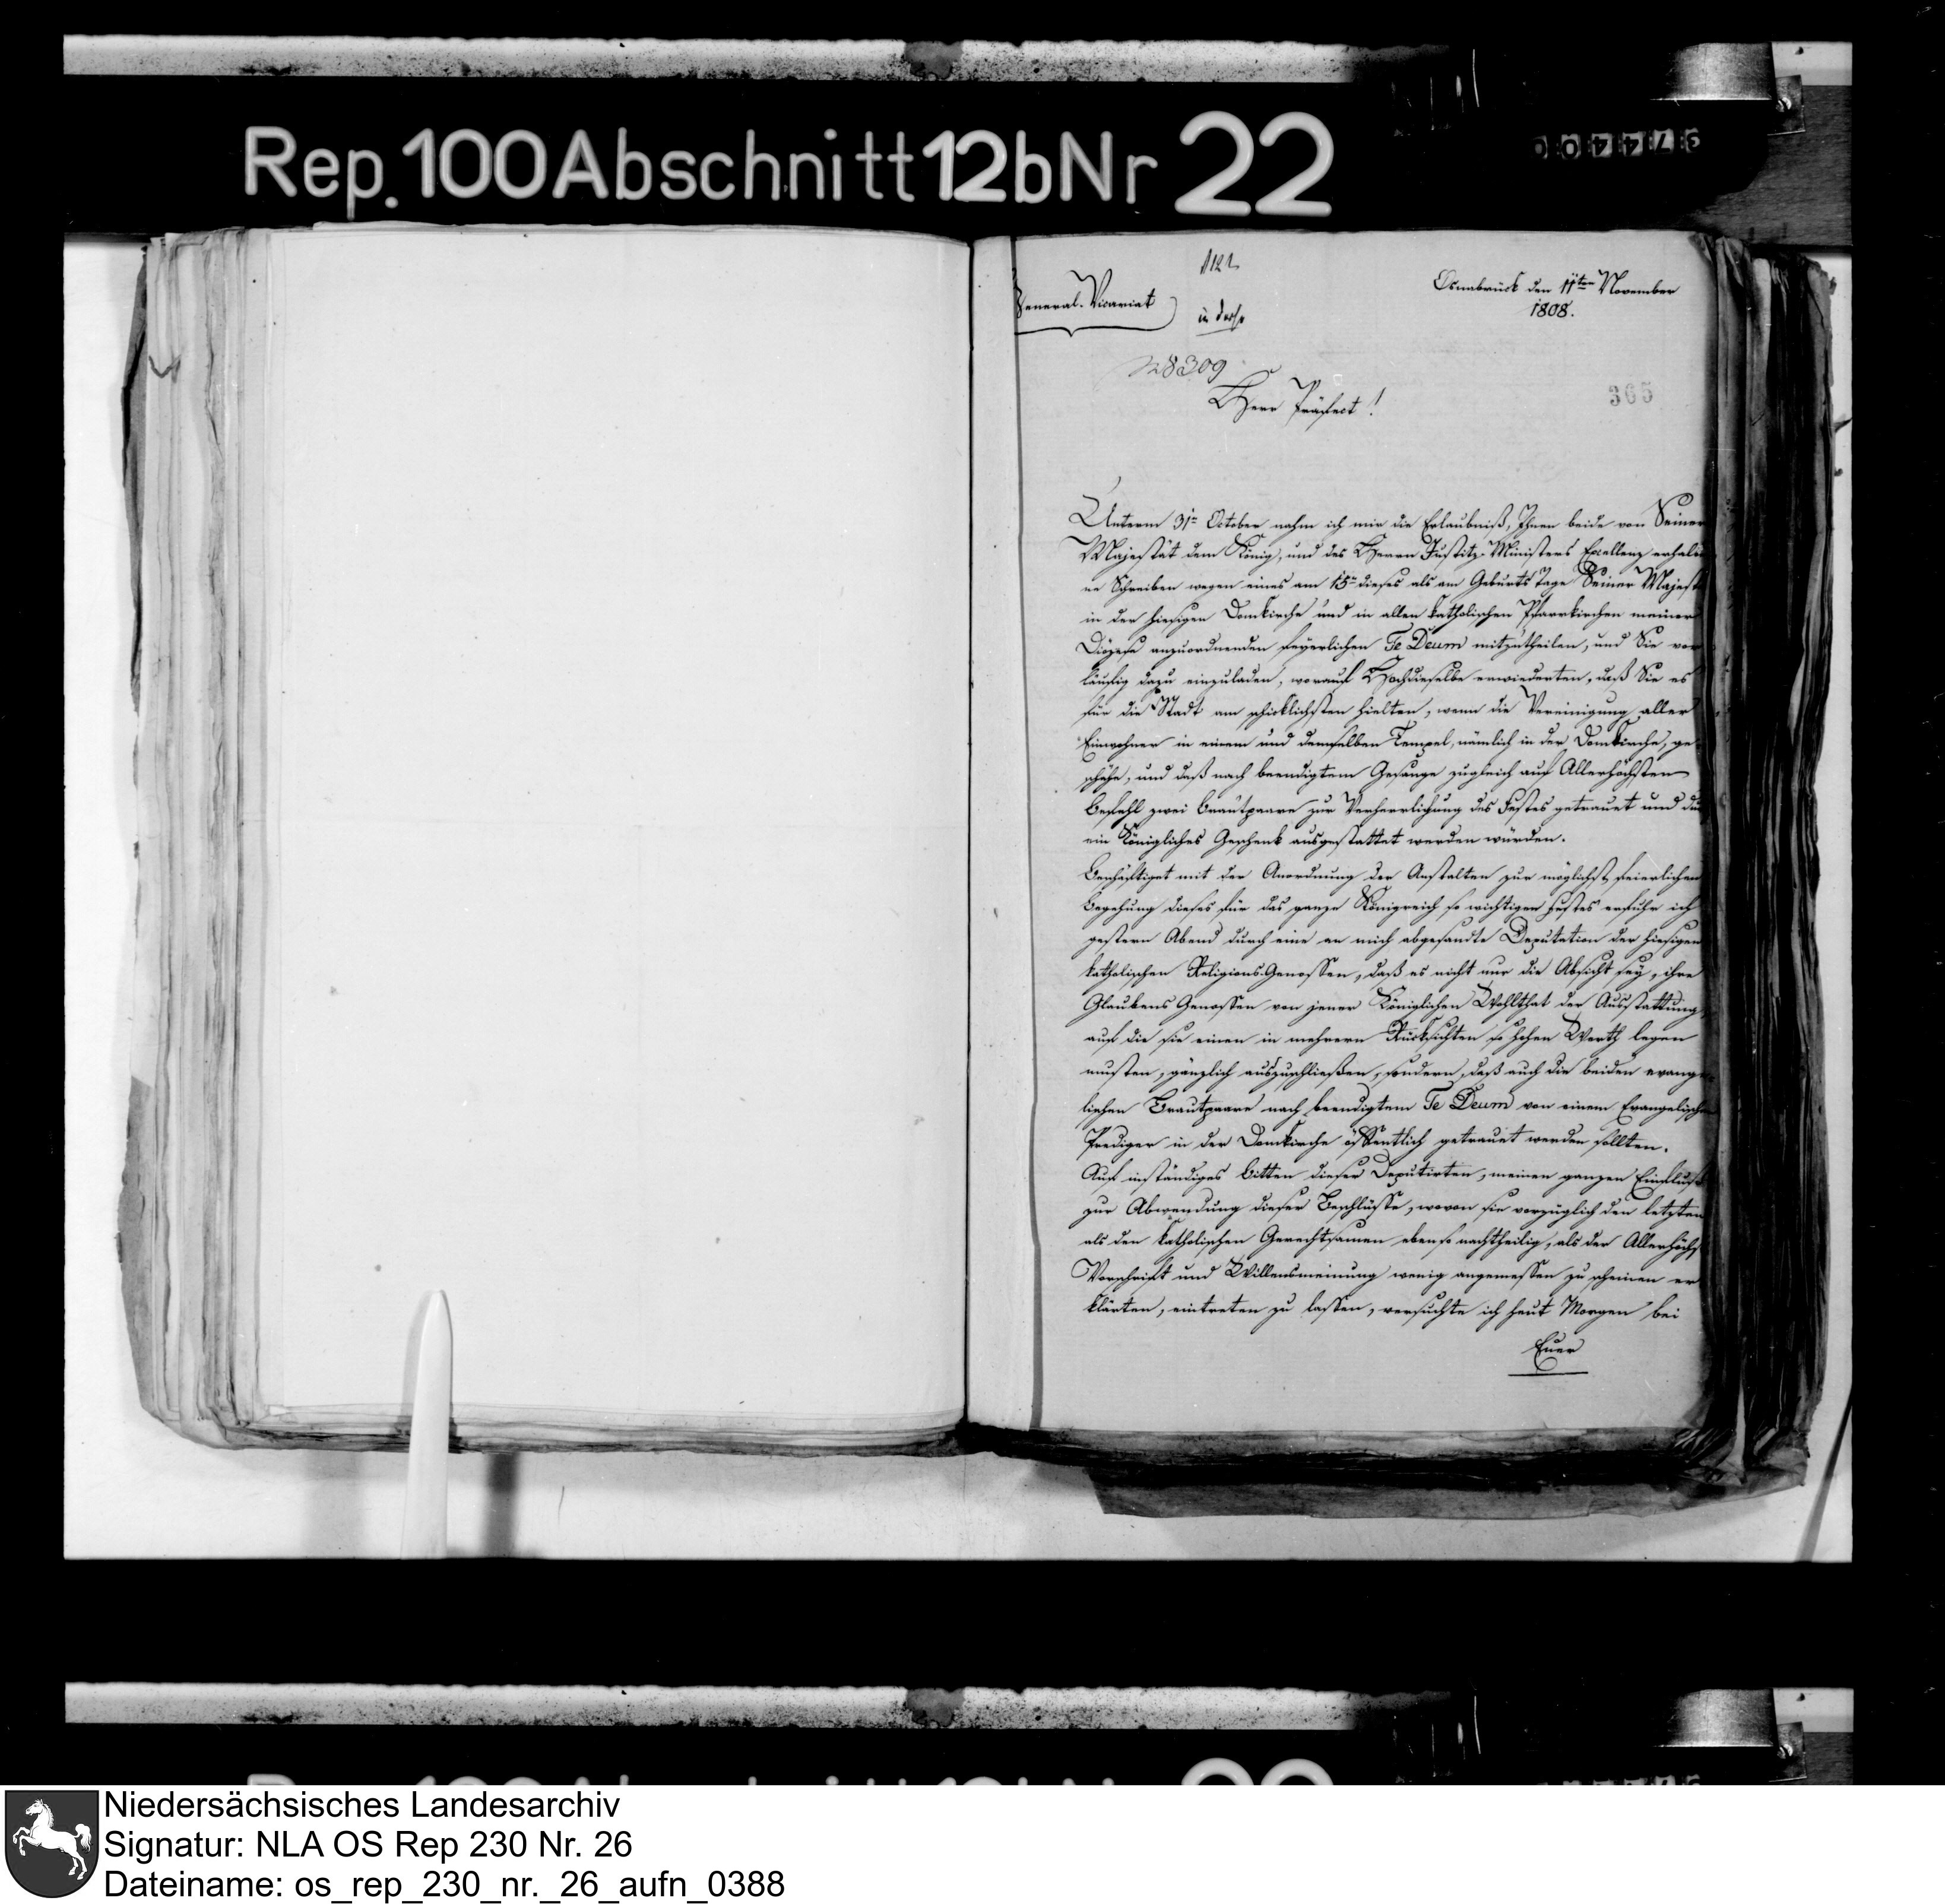 Rep. 100 Abschnitt 12b Nr 22
General-Vicariat
Osnabrück den 11ten November
1808.
in dorso
N 8309
365
Herr Präfect!
Unterm 31n October nahm ich mir die Erlaubniß, Ihnen beide von Seiner
Majestät dem König, und des Herrn Justitz-Ministers Excellenz erhalte
ne Schreiben wegen eines am 15n dieses als am Geburts Tage Seiner Majest
in der hiesigen Domkirche und in allen katholischen Pfarrkirchen meiner
Diözese anzuordnenden feyerlichen Te Deum mitzutheilen, und Sie vor
läufig dazu einzuladen, worauf Hochdieselbe erwiederten, daß Sie es
für die Stadt am schicklichsten hielten, wenn die Vereinigung aller
Einwohner in einem und demselben Tempel, nämlich in der Domkirche, ge
schähe, und daß nach beendigtem Gesange zugleich auf Allerhöchsten
Befehl zwei Brautpaare zur Verherrlichung des Festes getrauet und du
ein Königliches Geschenk ausgestattet werden würden.
Beschäftiget mit der Anordnung der Anstalten zur möglichst feierlichen
Begehung dieses für das ganze Königreich so wichtigen Festes erfuhr ich
gestern Abend durch eine an mich abgesandte Deputation der hiesigen
katholischen Religions-Genossen, daß es nicht nur die Absicht sey, ihre
Glaubens Genossen von jener Königlichen Wohlthat der Ausstattung,
auf die sie einen in mehrern Rücksichten so hohen Werth legen
musten, gänzlich auszuschließen, sondern, daß auch die beiden evange
lischen Brautpaare nach beendigtem Te Deum von einem Evangelischen
Prediger in der Domkirche öffentlich getrauet werden sollten.
Auf inständiges bitten dieser Deputirten, meinen ganzen Einfluß
zur Abwendung dieser Beschlüsse, wovon sie vorzüglich den letzten
als den katholischen Gerechtsamen ebenso nachtheilig, als der Allerhöchs
Vorschrift und Willensmeinung wenig angemessen zu scheinen er
klärten, eintreten zu lassen, versuchte ich heut Morgen bei
Euer
Niedersächsisches Landesarchiv
Signatur: NLA OS Rep 230 Nr. 26
Dateiname: os_rep_230_nr._26_aufn_0388